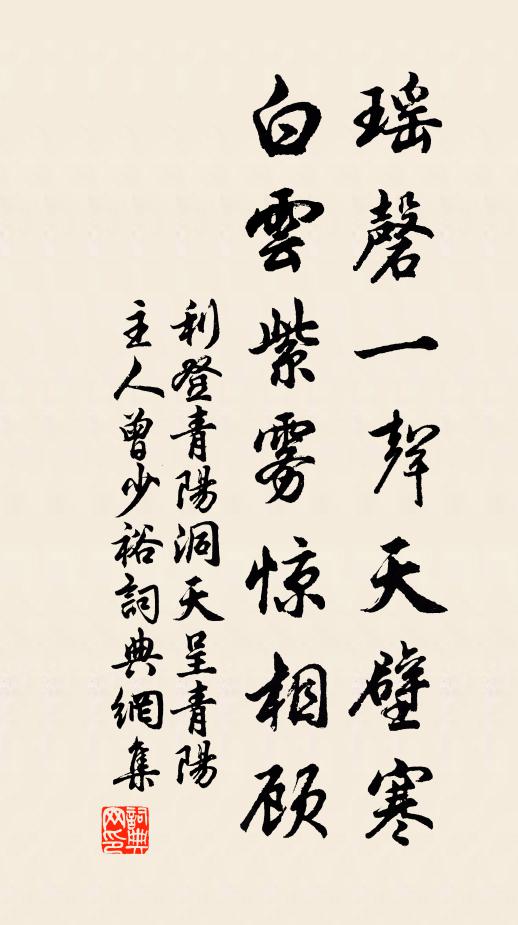 瑶磬一聲天壁寒
白雲紫雾惊相顾
利登青陽洞天呈青陽
主人曾少裕詞典網集
詞典
网印